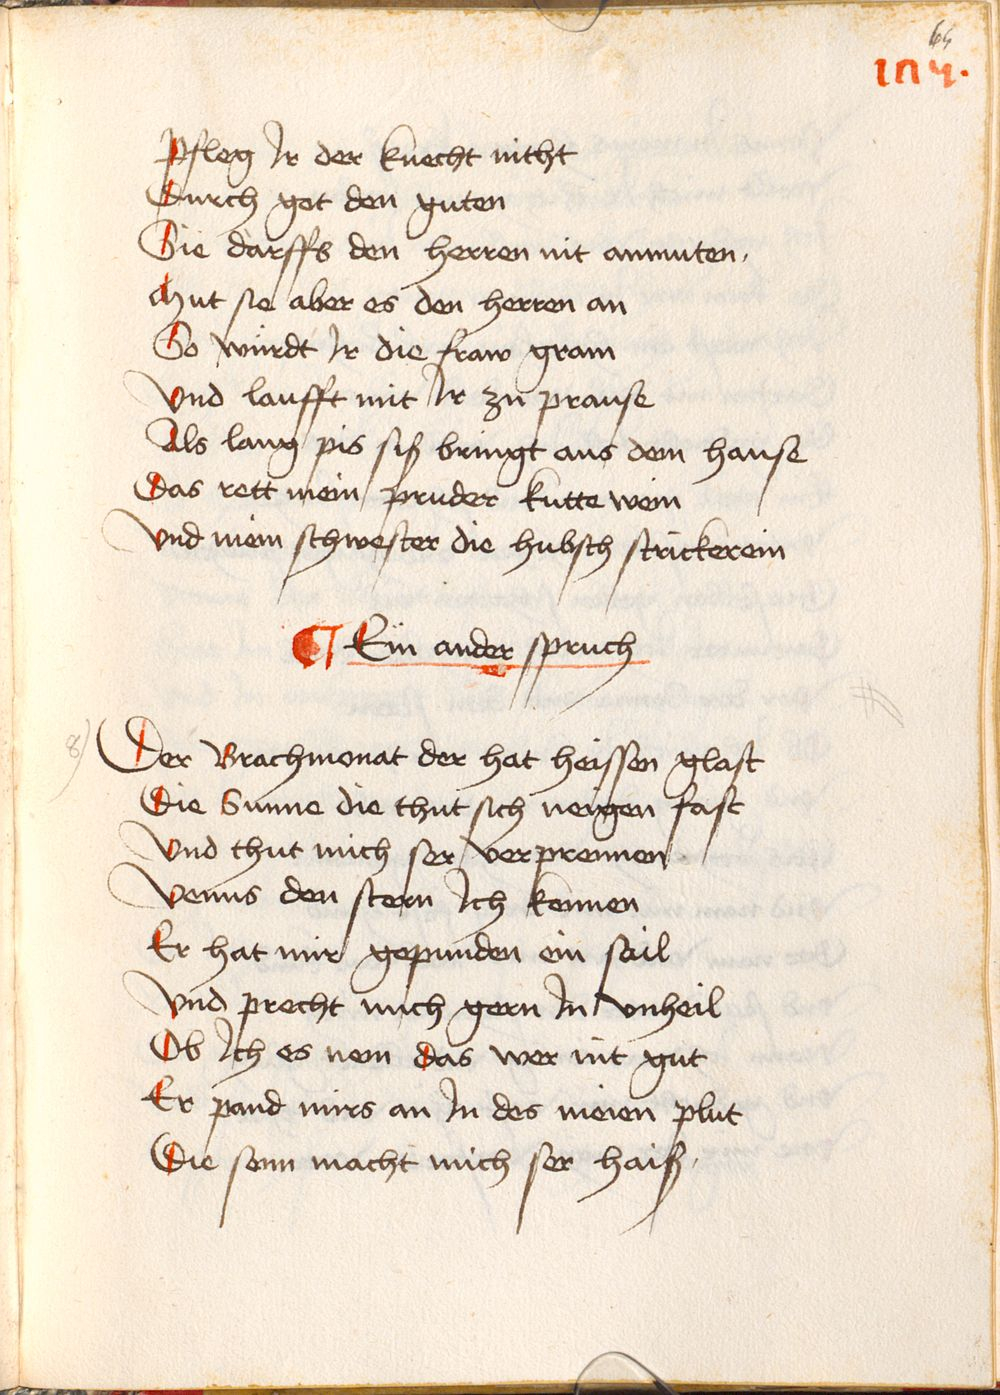 65
104.
Pfleg Ir der knecht nicht
Durch got den guten
Sie darffs den herren nit anmuten,
Mut sie aber es den herren an
So würdt Ir die fraw gram
Vnd laufft mit Ir zu prause
Als lang pis siß bringt aus dem hause
Das rett mein pruder kuttewein
Vnd mein schwester die hubsch strickerein
¶ Ein ander spruch
8)
Der Brachmonat der hat heissen glast
Die Sunne die thut sich neigen fast
Vnd thut mich ser verprennen
Venus den stern Ich kennen
Er hat mir gepunden ein seil
Vnd precht mich gern In vnheil
Ob Ich es nem das wer nit gut
Er pand mirs an In des meien plut
Die senn macht mich ser haiß,